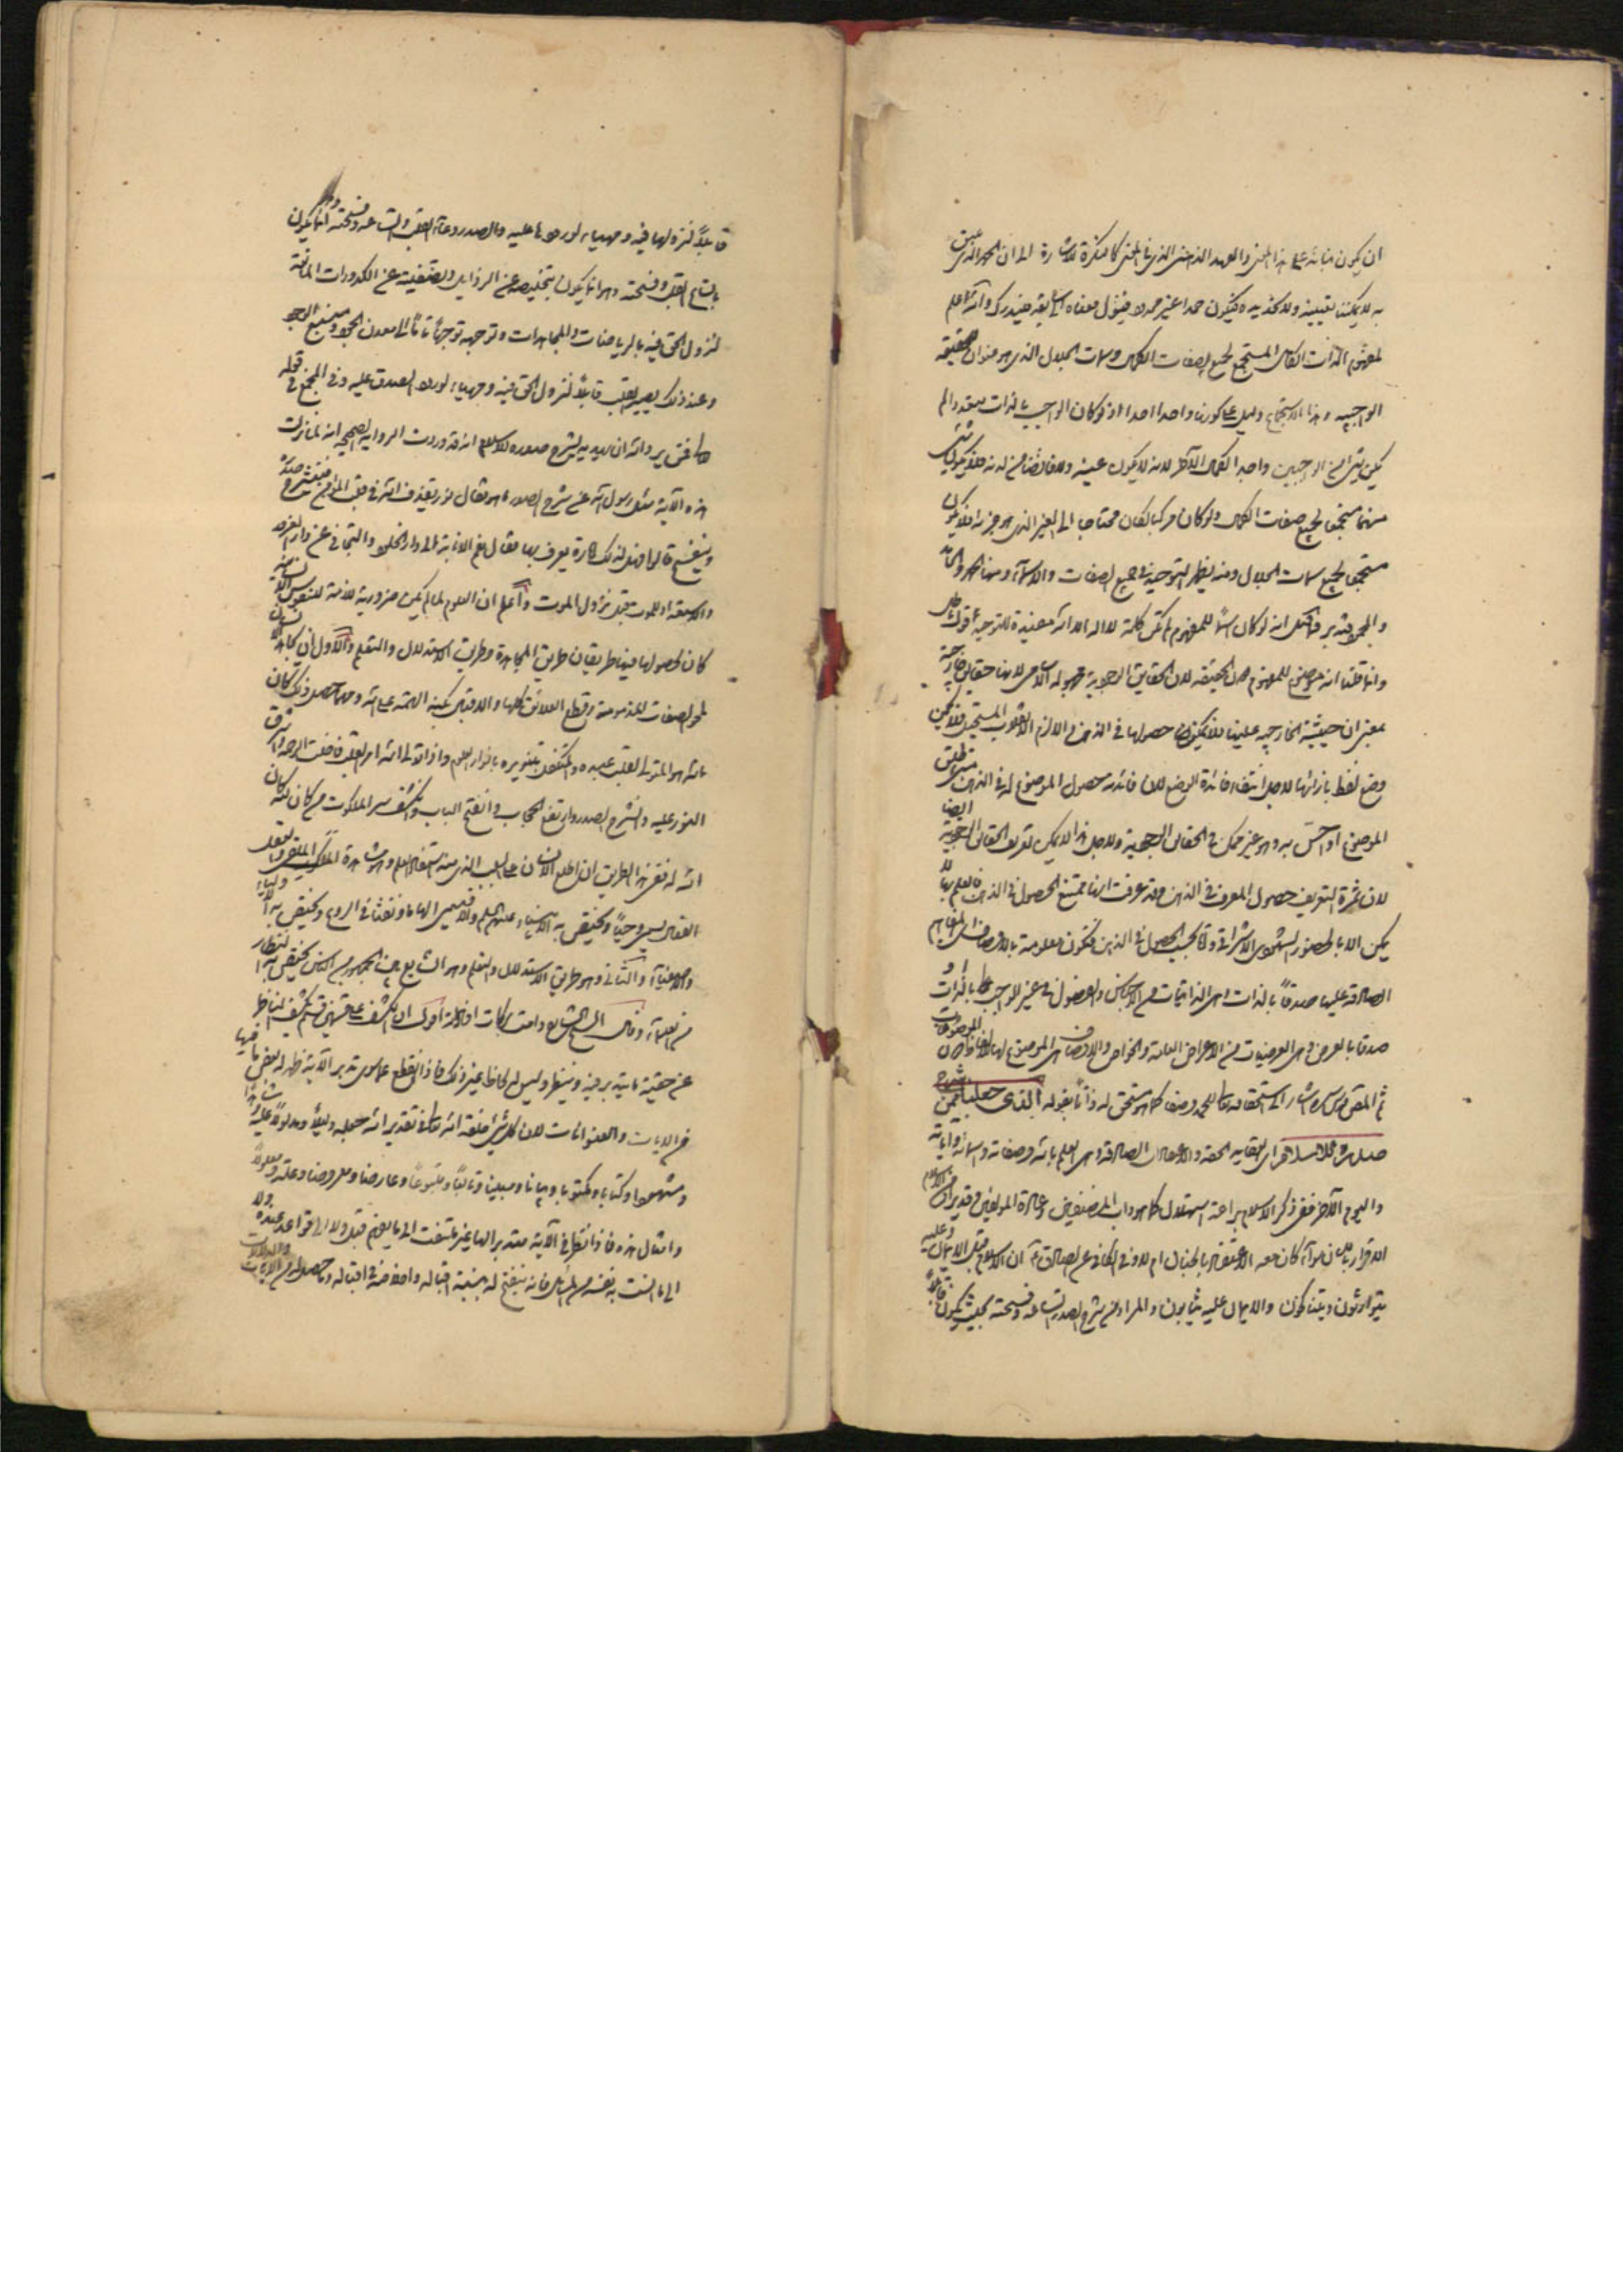 ان يكون منا على هذا المعنى والعهد الذهنى الذى فى المعنى كالنكرة للاشارة الى ان الحمد الذى
به لا يمكننا تعيينه ولا تحديده فيكون حمدا غير محدود معناه والله اعلم
لمفهوم الذات الكامل المستجمع لجميع الصفات الكمال وسمات الجلال الذى هو عنوان الحقيقة
الواجبية وهذا الاستجماع دليل على كونه واحدا احدا اذ لو كان الواجب بالذات متعددا لم
يكن شئ من الواجبين واجدا لكمال الآخر لانه لا يكون عينه ولا فائضا من لدنه فلا يكون شئ
منهما مستجمعا لجميع صفات الكمال ولو كان مركبا لكان محتاجا الى الغير الذى هو جزءه فلا يكون
مستجمعا لجميع سمات الجلال ومنه يظهر التوحيد فى جميع الصفات والاسماء ومنها الحمد
قيل انه لو كان اسما للمفهوم لم تكن كلمة لا اله الا الله مفيدة للتوحيد اقول
وانما قلنا انه موضوع للمفهوم دون الحقيقة لان الحقايق الوجودية مجهولة الاسامى لانها حقايق خارجية
بمعنى ان حيثية الخارجية عينها فلا يمكن حصولها فى الذهن والا لزم الانقلاب المستحيل فلا يمكن
وضع لفظ بازائها لاجل انتفاء فائدة الوضع لان فائدته حصول الموضوع له فى الذهن متى اطلق
الموضوع او احس به وهو غير ممكن فى الحقايق الوجودية ولاجل هذا لا يمكن تعريف الحقايق الوجودية ايضا
لان ثمرة التعريف حصول المعرف فى الذهن وقد عرفت انها ممتنع الحصول فى الذهن فالعلم بها لا
يمكن الا بالحضور الشهودى الاشراقى واما بحسب الحصول فى الذهن فتكون معلومة بالاوصاف والمفاهيم
الصادقة عليها صدقا بالذات وهى الذاتيات من الاجناس والفصول فى غير الواجب بالذات او
صدقا بالعرض وهى العرضيات من الاعراض العامة والخواص والاوصاف هى الموضوع لها الالفاظ
ثم المصنف قدس سره اشار الى استحقاقه تعالى للحمد وصفا كما هو مستحق له ذاتا بقوله الذى جعلنا ممن شرح
صدره للاسلام اى العقايد الحقة والاعمال الصادقة وهى العلم بالله وصفاته واسمائه وآياته
واليوم الآخر ففى ذكر الاسلام براعة استهلال كما هو داب المصنفين وعادة المؤلفين وقد يراد من الاسلام
الاقرار باللسان سواء كان معه الاعتقاد بالجنان ام لا وفى الكافى عن الصادق ع ان الاسلام قبل الايمان وعليه
يتوارثون ويتناكحون والايمان عليه يثابون والمراد من شرح الصدر اتساعه وفسحته بحيث يكون قابلا
قابلا لنزولها فيه ومهيا لورودها عليه والصدر وعاء القلب واتساعه وفسحته انما يكون
باتساع القلب وفسحته وهو انما يكون بتخليصه عن الرذايل وتصفيته عن الكدورات المانعة
لنزول الحق فيه بالرياضات والمجاهدات وتوجهه توجها تاما الى معدن الجود ومنبع الوجود
وعند ذلك يصير القلب قابلا لنزول الحق فيه ومهيا لورود الصدق عليه وفى المجمع فى قوله
تعالى فمن يرد الله ان يهديه يشرح صدره للاسلام انه قد وردت الرواية الصحيحة انه لما نزلت
هذه الآية سئل رسول الله عن شرح الصدر ما هو فقال نور يقذفه الله فى قلب المؤمن فينشرح صدره
وينفسح قالوا فهل لذلك امارة يعرف بها فقال نعم الانابة الى دار الخلود والتجافى عن دار الغرور
والاستعداد للموت قبل نزول الموت واعلم ان العلوم لما لم يكن ضرورية لازمة للنفوس الانسانية
كان لحصولها فينا طريقان طريق المجاهدة وطريق الاستدلال والتعلم والاول ان
لمحو الصفات المذمومة وقطع العلائق كلها والاقبال بكنه الهمة على الله ومهما حصل ذلك كان
الله هو المتولى لقلب عبده والمتكفل بتنويره بانوار العلم واذا تولى الله امر القلب فاضت الرحمة واشرق
النور عليه وانشرح الصدر وارتفع الحجاب وانفتح الباب وانكشف سر الملكوت من كان لله كان
الله له ففى هذا الطريق ان اطلع الانسان على السبب الذى منه استفاد العلم وهو مشاهدة الملك الملقى
الفعال يسمى وحيا ويختص به الانبياء عليهم السلام والا فيسمى الهاما ونفثا فى الروع ويختص به الاولياء
والاصفياء والثانى وهو طريق الاستدلال والتعلم وهو الشايع بين الجمهور من الناس يختص به النظار
من العلماء وقال الشيخ الشايع دامت بركات افاداته اقول ان الكشف على قسمين قسم يكشف الناظر
عن حقيقة ما يتدبر فيه وينظر وليس له لحاظ غير ذلك فاذا انقطع عما سوى تدبر الآية ظهر له بعض ما فيها
من الآيات والعنوانات لان كل شئ خلقه الله تعالى تقدير الله جعله دليلا ومدلولا عليه
ومشهودا وكتابا ومكتوبا وبيانا ومبينا وتابعا ومتبوعا وعارضا ومعروضا وعلة ومعلولا
وامثال هذه فاذا نظر فى الآية متدبرا لها غير ملتفت الى ما يفهم قبل ولا الى قواعد عنده ولا
الى ما انست به نفسه من المسائل فانه ينفتح له بنسبة اقباله واخلاصه فى اقباله وما حصل له من الآيات